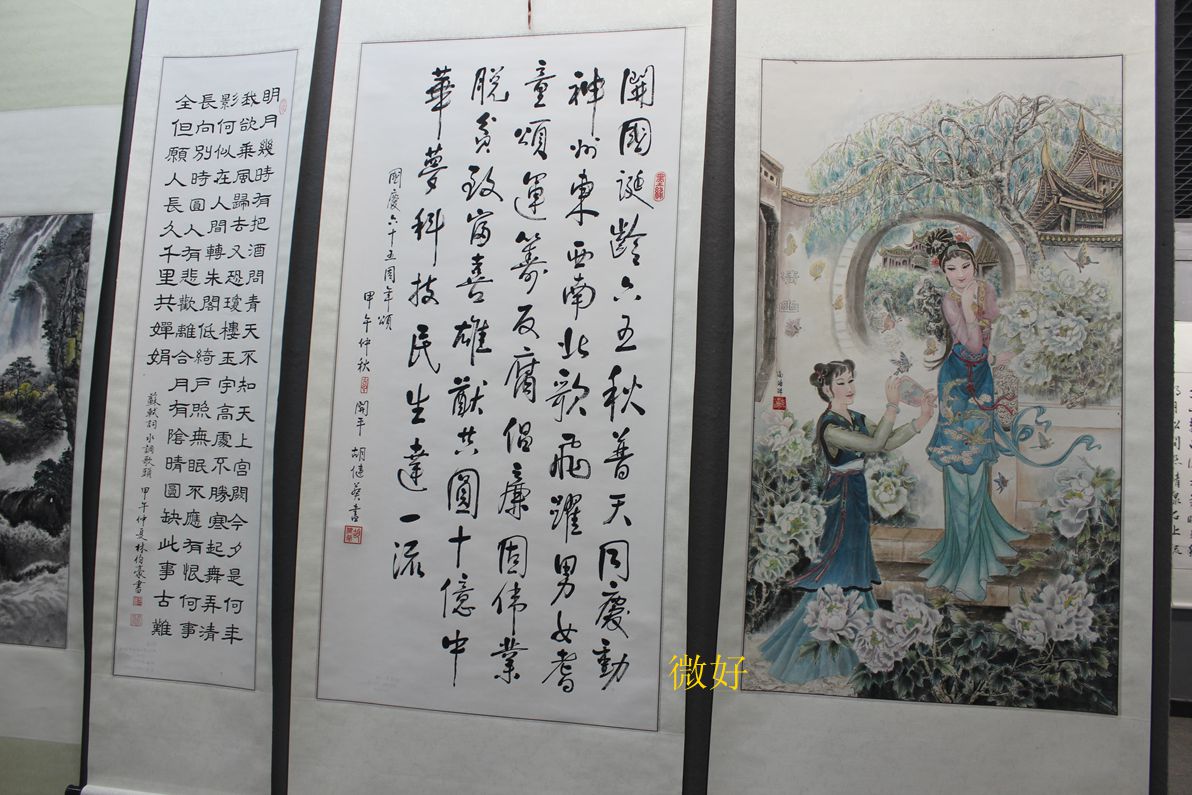 開國誕齡六五秋普天同慶動
神州東西南北歌飛躍男女耆
童頌運籌反腐倡廉固偉業
脫貧致富喜雄猷共圓十億中
華夢科技民生達一流
國慶六十五周年頌
甲午仲秋 開平 胡健英書
明月幾時有把酒問青天不知天上宮闕今夕是何年
我欲乘風歸去又恐瓊樓玉宇高處不勝寒起舞弄清
影何似在人間轉朱閣低綺戶照無眠不應有恨何事
長向別時圓人有悲歡離合月有陰晴圓缺此事古難
全但願人長久千里共嬋娟
蘇軾詞 水調歌頭 甲午仲夏林伯豪書
微好